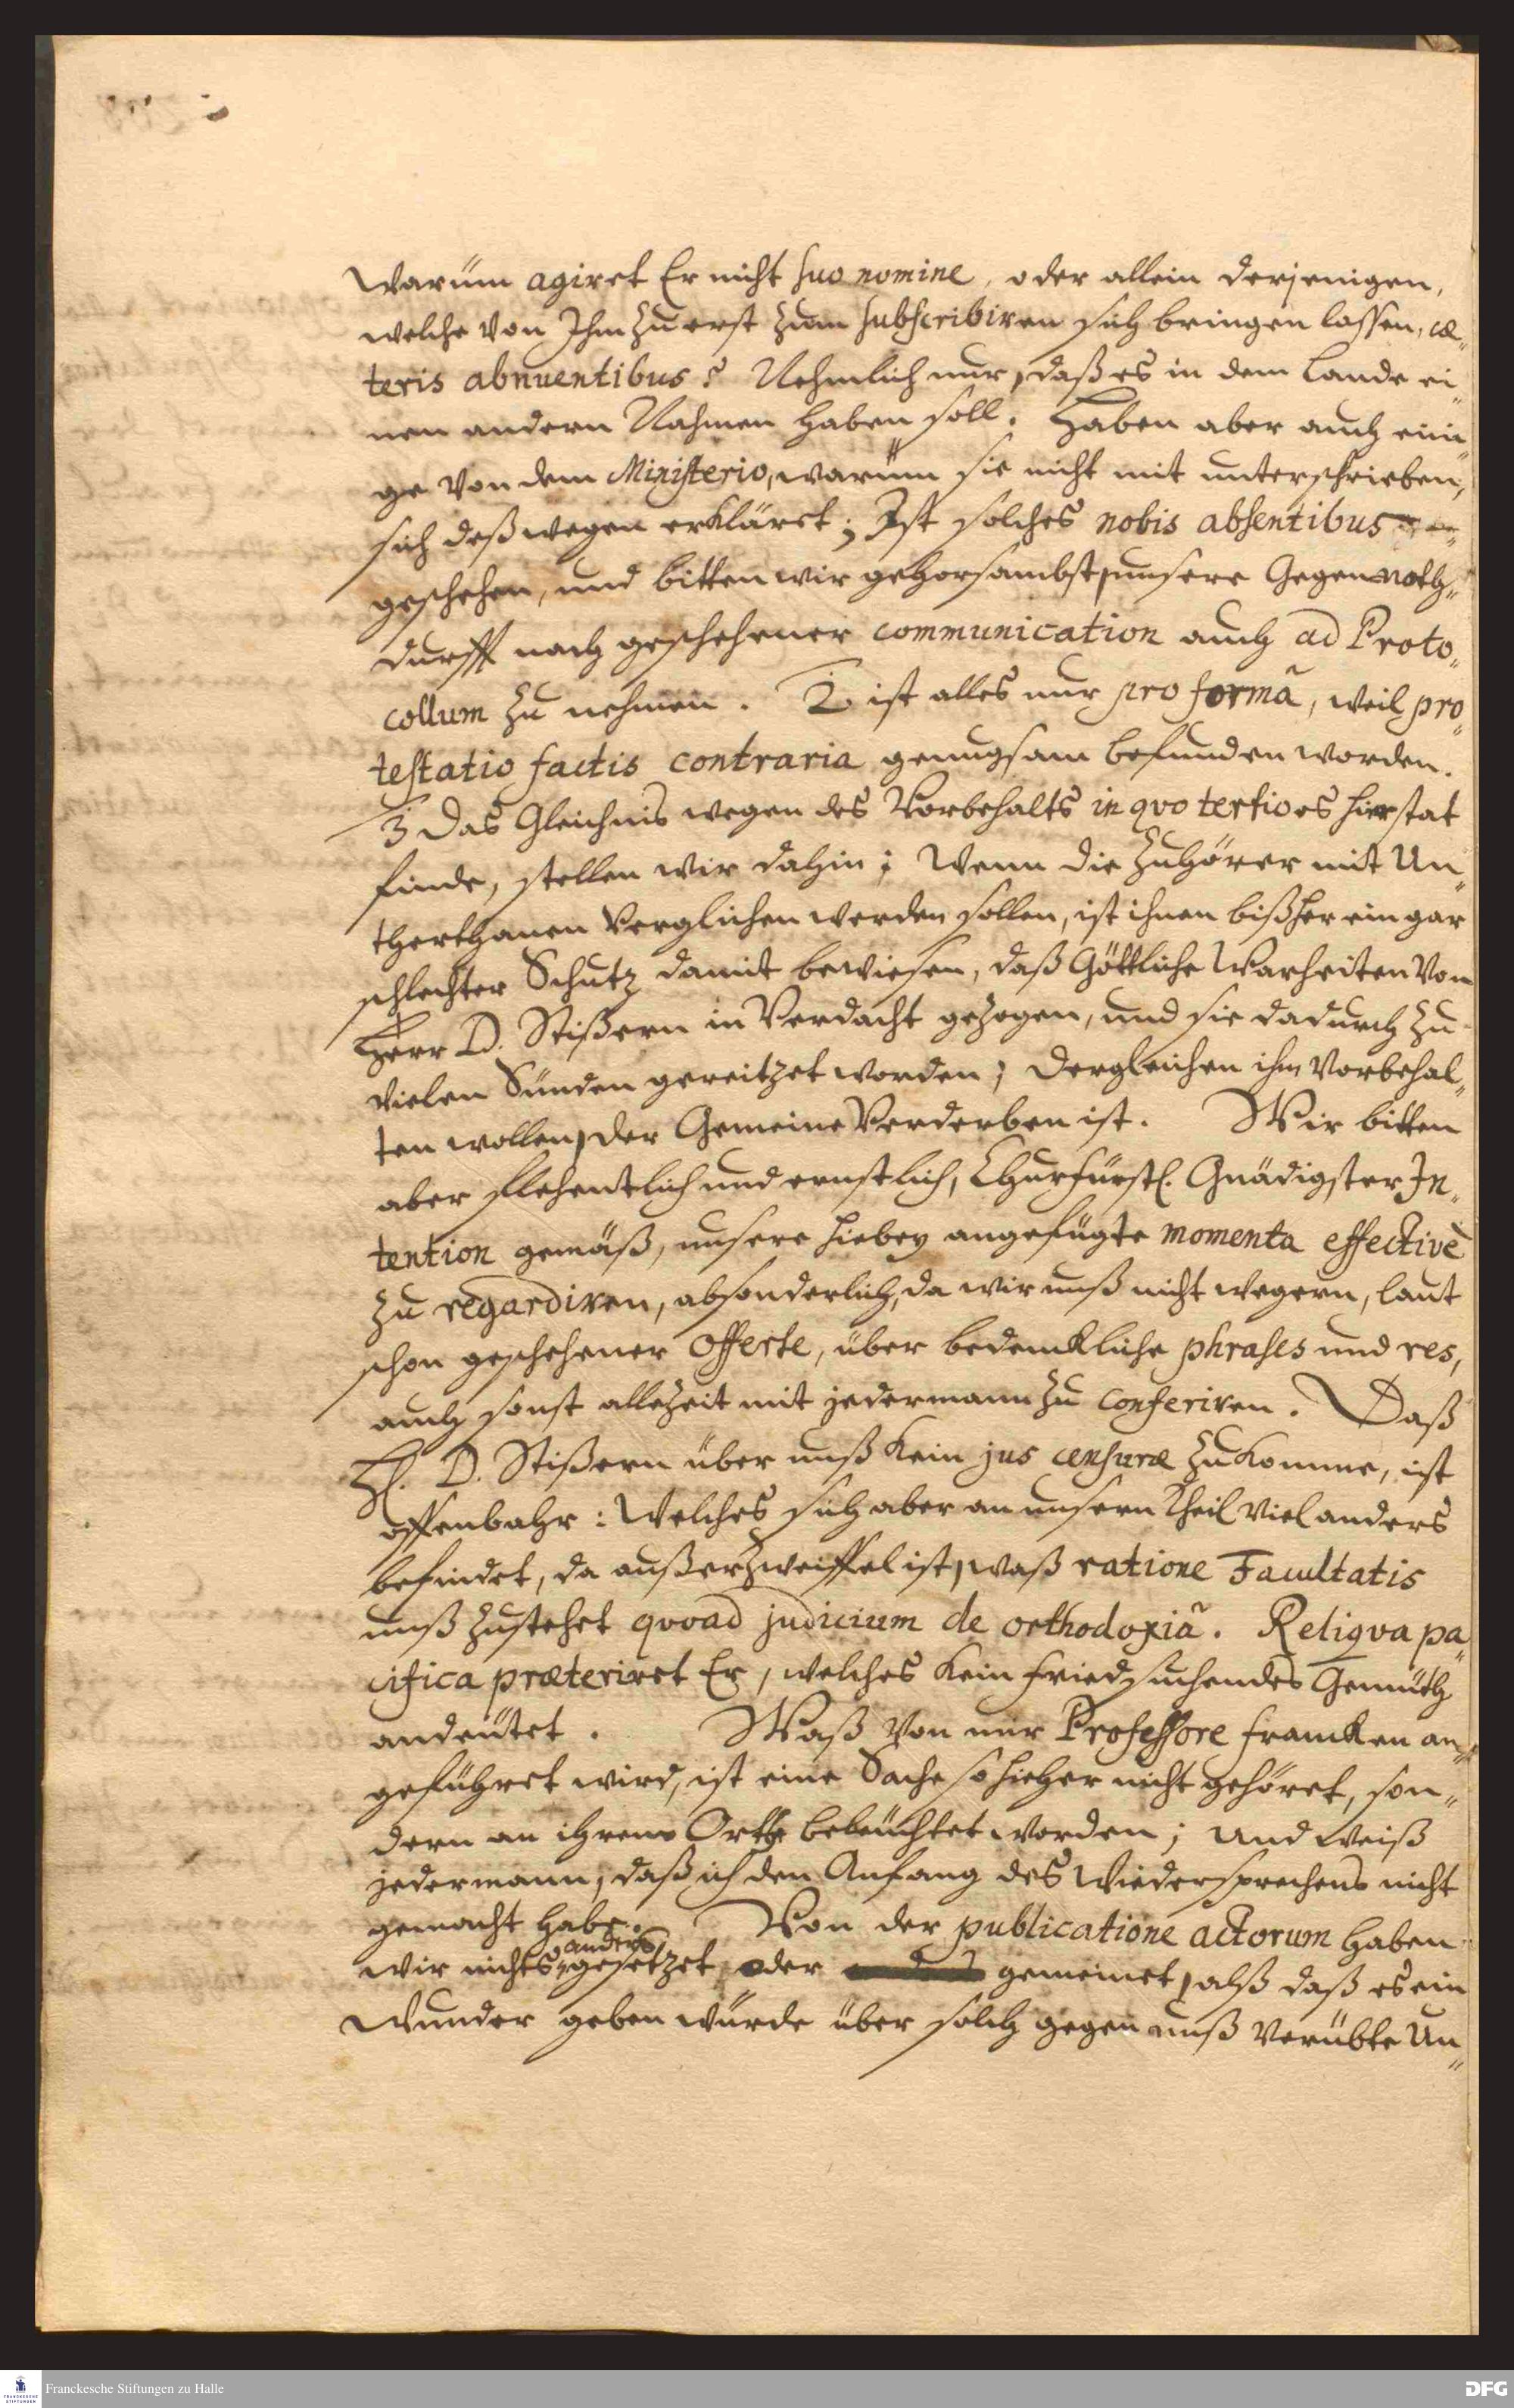 warüm agiret Er nicht suo nomine, oder allein derjenigen,
welche von Ihm zu erst zum subscribiren sich bringen lassen, cæ„
teris abnuentibus? Nehmlich nur, daß es in dem Lande ei„
nen andern Nahmen haben soll. Haben aber auch eini„
ge von dem Ministerio, warüm sie nicht mit unterschrieben,
sich deßwegen erkläret; Ist solches nobis absentibus
geschehen, und bitten wir gehorsambst, unsere Gegennoth„
durfft nach geschehener communication auch ad Proto„
collum zu nehmen. 2 ist alles nur pro formâ, weil pro„
testatio factis contraria genugsam befunden worden.
3 Das Gleichnis wegen des Vorbehalts in qvo tertio es hier stat
finde, stellen wir dahin; Wenn die Zuhörer mit Un„
therthanen verglichen werden sollen, ist ihnen bißher ein gar
schlechter Schutz damit bewiesen, daß Göttliche Warheiten von
Herr D. Stißern in Verdacht gezogen, und sie dadurch zu
vielen Sünden gereitzet worden; dergleichen ihm vorbehal„
ten wollen, der Gemeine Verderben ist. Wir bitten
aber flehentlich und ernstlich, Churfürstl. Gnädigster In„
tention gemäß, unsere hiebey angefügte momenta effectivè
zu regardiren, absonderlich, da wir unß nicht wegern, laut
schon geschehener Offerte, über bedenckliche phrases und res,
auch sonst allezeit mit jedermann zu conferiren. Daß
H. D. Stißern über unß kein jus censuræ zukomme, ist
offenbahr: Welches sich aber an unsern Theil viel anders
befindet, da außer Zweiffel ist, waß ratione Facultatis
unß zustehet qvoad judicium de orthodoxiâ. Reliqva pa„
cifica præteriret Er, welches kein friedsuchendes Gemüth
andeütet. Waß von mir Professore Francken an„
geführet wird, ist eine Sache so hieher nicht gehöret, son„
dern an ihrem Orthe beleuchtet worden; und weiß
jedermann, daß ich den Anfang des Wiedersprechens nicht
gemacht habe. Von der publicatione actorum haben
wir nichts anders gesetzet, oder gemeinet, alß daß es ein
Wunder geben würde über solch gegen unß verübte Un„
Franckesche Stiftungen zu Halle
DFG